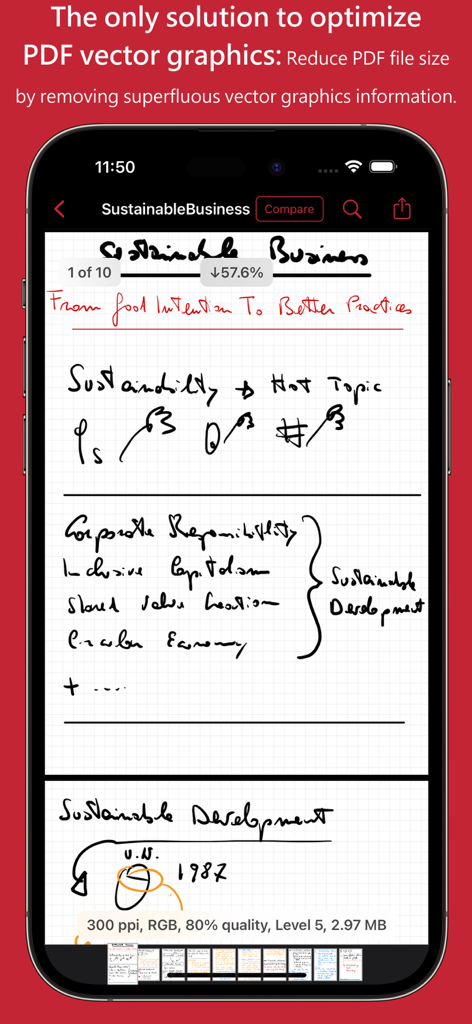 The only solution to optimize
PDF vector graphics: Reduce PDF file size
by removing superfluous vector graphics information.
11:50
SustainableBusiness Compare
Sustainable Business
1 of 10 ↓57.6%
From Good Intention To Better Practices
Sustainability → Hot Topic
Corporate Responsibility
Inclusive Capitalism
Shared Value Creation
Circular Economy
+ ....
Sustainable
Development
Sustainable Development
U.N.
1987
300 ppi, RGB, 80% quality, Level 5, 2.97 MB